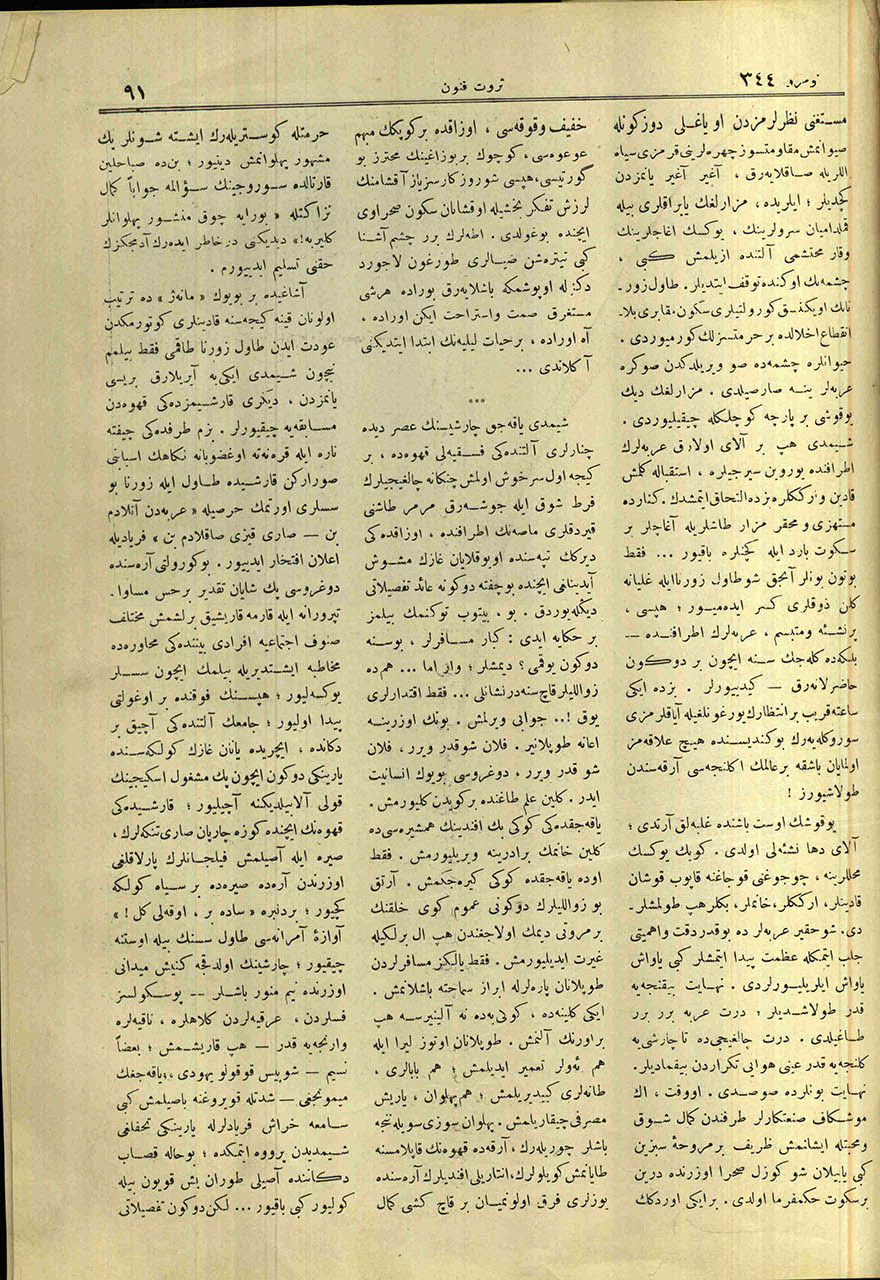 نومرو ٣٤٤
ثروت فنون
٩١
مستغنی نظرلرمزدن او یاغلی دوزکونله
صیوانمش مقاومتسوز چهره‌لرینی قرمزی سیاه
اللریله صاقلایه‌رق، آغیر آغیر یانمزدن
کچدیلر؛ ایلریده، مزارلغك یاپراقلری بیله
قملدامیان سرولرینك، یوکسك اغاجلرینك
وقار محتشمی آلتنده ازیلمش کبی،
چشمه‌نك اوکنده توقف ایتدیلر. طاول زور-
نانك اویکنسق کورولتیلری سکون مقابری بلا-
انقطاع اخلالده بر حرمتسزلك کورمیوردی.
حیوانلره چشمه‌ده صو ویریلدکدن صوکره
عربه‌لر ینه صارصیلدی. مزارلغك دیك
یوقوشی بر پارچه کوچلکله چیقیلیوردی.
شیمدی هپ بر آلای اولارق عربه‌لرك
اطرافنده یوروین سیرجیلره، استقباله کلمش
قادین وارککلره بزده التحاق ایتمشدك. کنارده
مستهزی و محقر مزار طاشلریله آغاجلر بر
سکوت بارد ایله کچنلره باقیور ... فقط
بوتون بونلر آنجق شو طاول زورنا ایله غلیانه
کلن ذوقلری کسر ایده‌میور؛ هپسی،
پرنشئه و متبسم، عربه‌لرك اطرافنده —
بلکه‌ده کله‌جك سنه ایچون بر دوکون
حاضرلانه‌رق — کیدییورلر. بزده ایکی
ساعته قریب بر انتظارك یورغونلغیله آیاقلرمزی
سوروکله‌یه‌رك بوکندیسنده هیچ علاقه‌مز
اولمایان باشقه بر عالمك اکلنجه‌سی آرقه‌سندن
طولاشیورز!
یوقوشك اوست باشنده غلبه‌لق آرتدی؛
آلای دها نشئه‌لی اولدی. کوبك یوکسك
محللرینه، چوجوغنی قوجاغنه قاپوب قوشان
قادینلر، ارککلر، خانملر، بکلر هپ طولمشلر-
دی. شو حقیر عربه‌لر ده بوقدر دقت واهمیتی
جلب ایتمکله عظمت پیدا ایتمشلر کبی یاواش
یاواش ایلریلیورلردی. نهایت بیقنجه‌یه
قدر طولاشدیلر؛ درت عربه برر برر
طاغیلدی. درت چالغیجی‌ده تا چارشی‌یه
کلنجه‌یه قدر عینی هوایی تکراردن بیقمادیلر.
نهایت بونلرده صوصدی. اووقت، اك
موشکاف صنعتکارلر طرفندن کمال شوق
ومحبتله ایشانمش ظریف بر مروحهٔ سبزین
کبی یاپیلان شو کوزل صحرا اوزرنده درین
بر سکوت حکمفرما اولدی. برایکی اوردکك
خفیف وقوقه‌سی، اوزاقده بر کوپكك مبهم
عوعوه‌سی، کوچوك بر بوزاغینك محترز بو
گورتیسی، هپسی شو روزکارسز یاز آقشامنك
لرزش تفکر بخشیله اوفشایان سکون صحراوی
ایچنده بوغولدی. اطه‌لرك برر چشم آشنا
کبی تیتره‌شن ضیالری طورغون لاجورد
دکزله اوپوشمکه باشلایه‌رق بوراده هرشی
مستغرق صمت واستراحت ایکن اوراده،
آه اوراده، بر حیات لیلیه‌نك ابتدا ایتدیکنی
آکلاتدی ...
***
شیمدی یاقه‌جق چارشیسنك عصر دیده
چنارلری آلتنده‌کی فسقیه‌لی قهوه‌ده، بر
کیجه اول سرخوش اولمش چنکانه چالغیجیلرك
فرط شوق ایله جوشه‌رق مرمر طاشنی
قیردقلری ماصه‌نك اطرافنده، اوزاقده‌کی
دیرکك تپه‌سنده اویوقلایان غازك مشوش
آیدینلغی ایچنده بوچفته دوکونه عائد تفصیلاتی
دیکله‌یوردق. بو، بیتوب توکنمك بیلمز
بر حکایه ایدی: کبار مسافرلر، بوسنه
دوکون یوقمی؟ دیمشلر؛ وار اما ... هم‌ده
زواللیلر قاچ سنه‌در نشانلی ... فقط اقتدارلری
یوق!.. جوابی ویرلمش. بونك اوزرینه
اعانه طوپلانیر. فلان شوقدر ویرر، فلان
شو قدر ویرر، دوغروسی بویوك انسانیت
ایدر. کلین علم طاغنده بر کویدن کلیورمش.
یاقه‌جقده‌کی کوکی بك افندینك همشیره‌سی‌ده
کلین خانمك برادرینه ویریلیورمش. فقط
اوده یاقه‌جقده کوکی کیره‌جکمش. آرتق
بو زواللیلرك دوکونی عموم کوی خلقنك
بر مروتی دیمك اولاجغندن هپ ال برلکیله
غیرت ایدیلیورمش. فقط یالکز مسافرلردن
طوپلانان پاره‌لرله ابراز سماحته باشلانمش.
ایکی کلینه‌ده، کوکی‌یه‌ده نه آلینیرسه هپ
بر اورنك آلنمش. طوپلانان اوتوز لیرا ایله
هم ئه‌ولر تعمیر ایدیلمش؛ هم بابالری،
طانه‌لری کیدیریلمش؛ هم پهلوان، یاریش
مصرفی چیقاریلمش. پهلوان سوزی سویله‌نجه
باشلر چوریله‌رك، آرقه‌ده قهوه‌نك قاپلامسنه
طایانمش کویلولرك، انتاریلی افندیلرك آره‌سنده
یوزلری فرق اولونمیان بر قاچ کشی کمال
حرمتله کوستریله‌رك ایشته شونلر پك
مشهور پهلوانمش دینیور؛ بن‌ده صباحلین
قارتالده سوروجینك سؤالمه جواباً کمال
نزاکتله «بورایه چوق منشور پهلوانلر
کلیربه!» دیدیکنی درخاطر ایده‌رك آدمجکزك
حقنی تسلیم ایدییورم.
آشاغیده بر بویوك «مانه‌ژ» ده ترتیب
اولونان قینه کیجه‌سنه قادینلری کوتورمکدن
عودت ایدن طاول زورنا طاقمی فقط بیلمم
نیچون شیمدی ایکی‌یه آیریلارق بریسی
یانمزدن، دیکری قارشیمزده‌کی قهوه‌دن
مسابقه‌یه چیقیورلر. بزم طرفده‌کی چیفته
ناره ایله قره‌نه‌ته اوغضوبانه نکاهك اسبابنی
صورارکن قارشیده طاول ایله زورنا بو
سسلری اورتمك حرصیله «عربه‌دن آتلادم
بن — صاری قیزی صاقلادم بن» فریادیله
اعلان افتخار ایدییور. بوکورولتی آره‌سنده
دوغروسی پك شایان تقدیر بر حس مساوا-
تپرورانه ایله قارمه قاریشیق برلشمش مختلف
صنوف اجتماعیه افرادی بیننده‌کی محاوره‌ده
مخاطبه ایشتدیریله بیلمك ایچون سسلر
یوکسه‌لیور؛ هپسنك فوقنده بر اوغولتی
پیدا اولیور؛ جامعك آلتنده‌کی آچیق بر
دکانده، ایچریده یانان غازك کولکه‌سنده
یارینکی دوکون ایچون پك مشغول اسکیجینك
قولی آلابیلدیکنه آچیلیور؛ قارشیده‌کی
قهوه‌نك ایچنده کوزه چارپان صاری تنکه‌لرك،
صیره ایله آصیلمش فیلجانلرك پارلاقلغی
اوزرندن آره‌ده صیره‌ده بر سیاه کولکه
کچیور؛ بردنبره «ساده بر، اوقه‌لی کل!»
آوازهٔ آمرانه‌سی طاول سسنك بیله اوستنه
چیقیور؛ چارشینك اولدقجه کنیش میدانی
اوزرنده نیم منور باشلر — پوسکولسز
فسلردن، عرقیه‌لردن کلاهلره، ناقیه‌لره
وارنجه‌یه قدر — هپ قاریشمش؛ بعضاً
نسیم — شوپیس قوقولو یهودی، یاقه‌جغك
میمونجغی — شدتله قویروغنه باصیلمش کبی
سامعه خراش فریادلرله یارینکی تحفلغی
شیمدیدن پرووه ایتمکده؛ بوحاله قصاب
دکاننده آصیلی طوران بش قویون بیله
کولیور کبی باقیور ... لکن دوکون تفصیلاتی